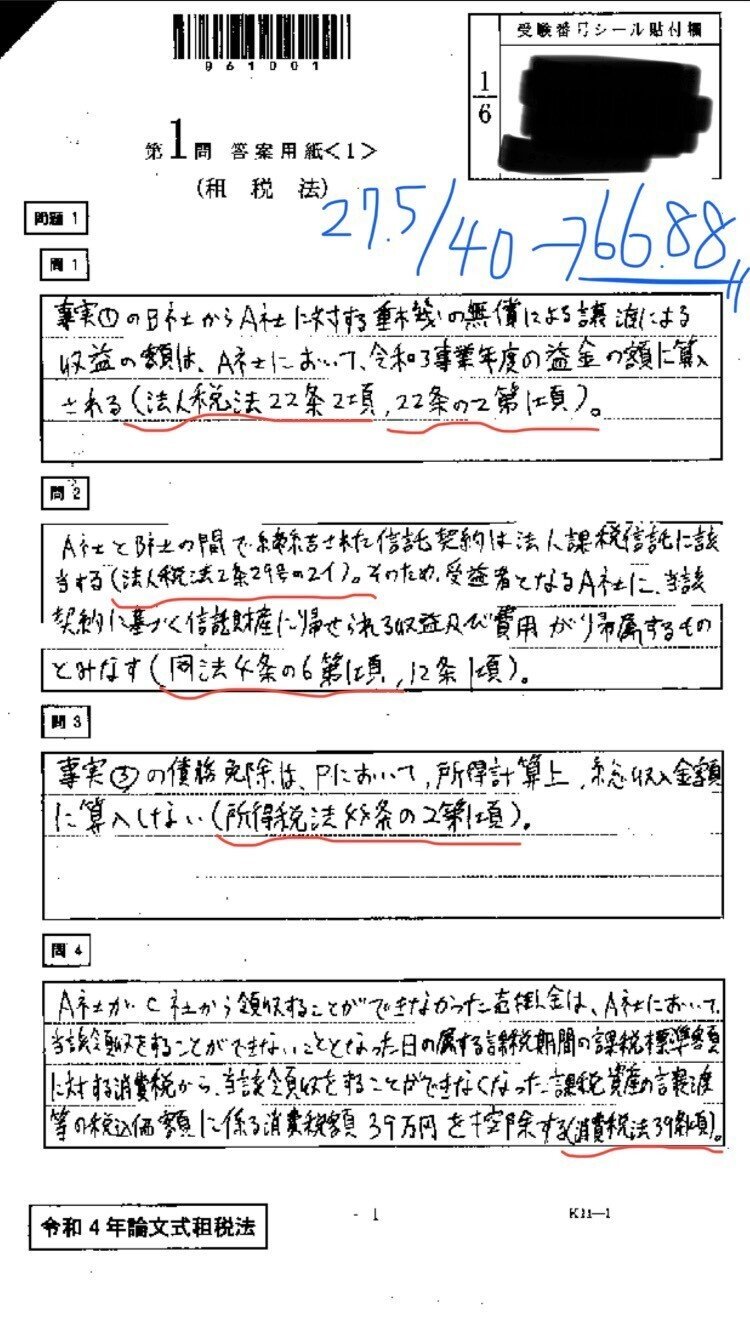 961001
受験番号シール貼付欄
1/6
第1問 答案用紙<1>
(租税法)
27.5/40→66.88
問題 1
問 1
事実①のB社からA社に対する重機の無償による譲渡による
収益の額は、A社において、令和3事業年度の益金の額に算入
される(法人税法22条2項,22条の2第1項)。
問 2
A社とB社の間で締結された信託契約は法人課税信託に該
当する(法人税法2条29号の2イ)。そのため、受益者となるA社に、当該
契約に基づく信託財産に帰せられる収益及び費用が帰属するもの
とみなす(同法4条の6第1項,12条1項)。
問 3
事実③の債務免除は、Pにおいて,所得計算上,総収入金額
に算入しない(所得税法44条の2第1項)。
問 4
A社がC社から領収することができなかった売掛金は、A社において、
当該領収をすることができないこととなった日の属する課税期間の課税標準額
に対する消費税から、当該領収をすることができなくなった課税資産の譲渡
等の税込価額に係る消費税額39万円を控除する(消費税法39条1項)。
令和4年論文式租税法
- 1
K11—1